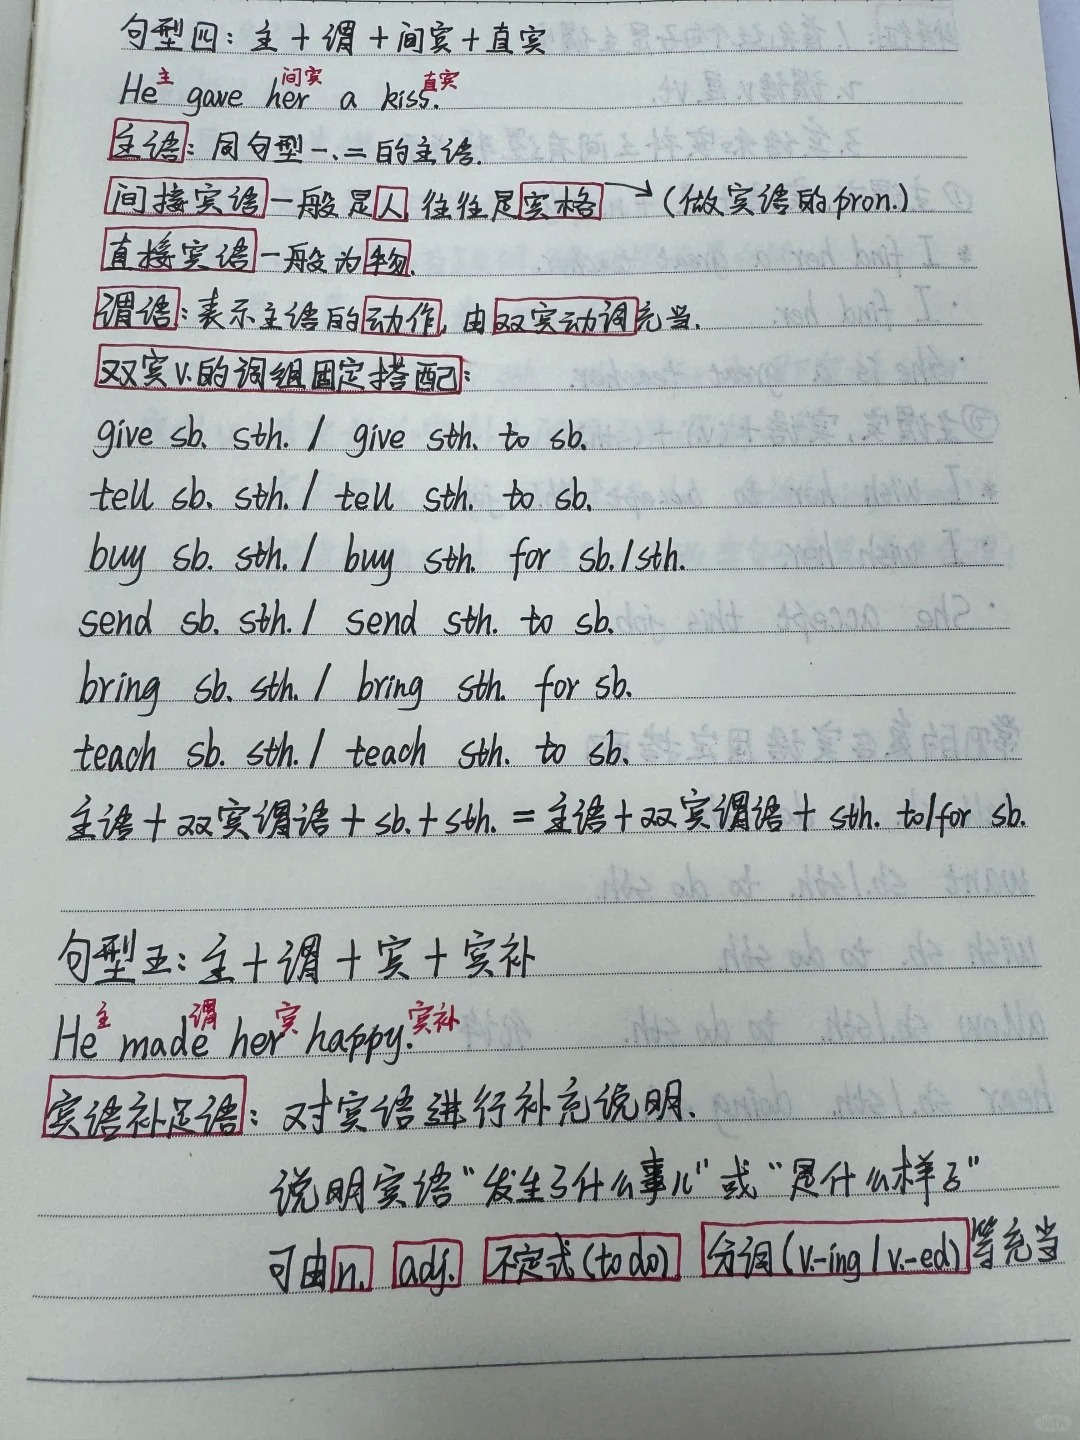 句型四：主＋谓＋间宾＋直宾
主 间宾 直宾
He gave her a kiss.
主语：同句型一.二的主语.
间接宾语一般是人 往往是宾格→(做宾语的pron.)
直接宾语一般为物.
谓语：表示主语的动作,由双宾动词充当.
双宾v.的词组固定搭配：
give sb. sth. / give sth. to sb.
tell sb. sth. / tell sth. to sb.
buy sb. sth. / buy sth. for sb./sth.
send sb. sth. / send sth. to sb.
bring sb. sth. / bring sth. for sb.
teach sb. sth. / teach sth. to sb.
主语＋双宾谓语＋sb.＋sth.＝主语＋双宾谓语＋sth. to/for sb.
句型五：主＋谓＋宾＋宾补
主 谓 宾 宾补
He made her happy.
宾语补足语：对宾语进行补充说明.
说明宾语“发生了什么事儿”或“是什么样子”
可由n. adj. 不定式(to do) 分词(v.-ing / v.-ed)等充当